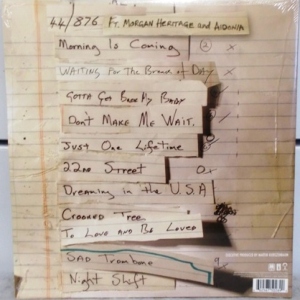 44/876 Ft. MORGAN HERITAGE and AIDONIA
Morning Is Coming
2
WAITING For THE Break of Day
GOTTA GET BACK MY BABY
DON'T MAKE ME WAIT.
JUST ONE LIFETIME
22nd STREET
Dreaming in the U.S.A
CROOKED TREE
To LOVE AND BE LOVED
SAD TROMBONE
Night Shift